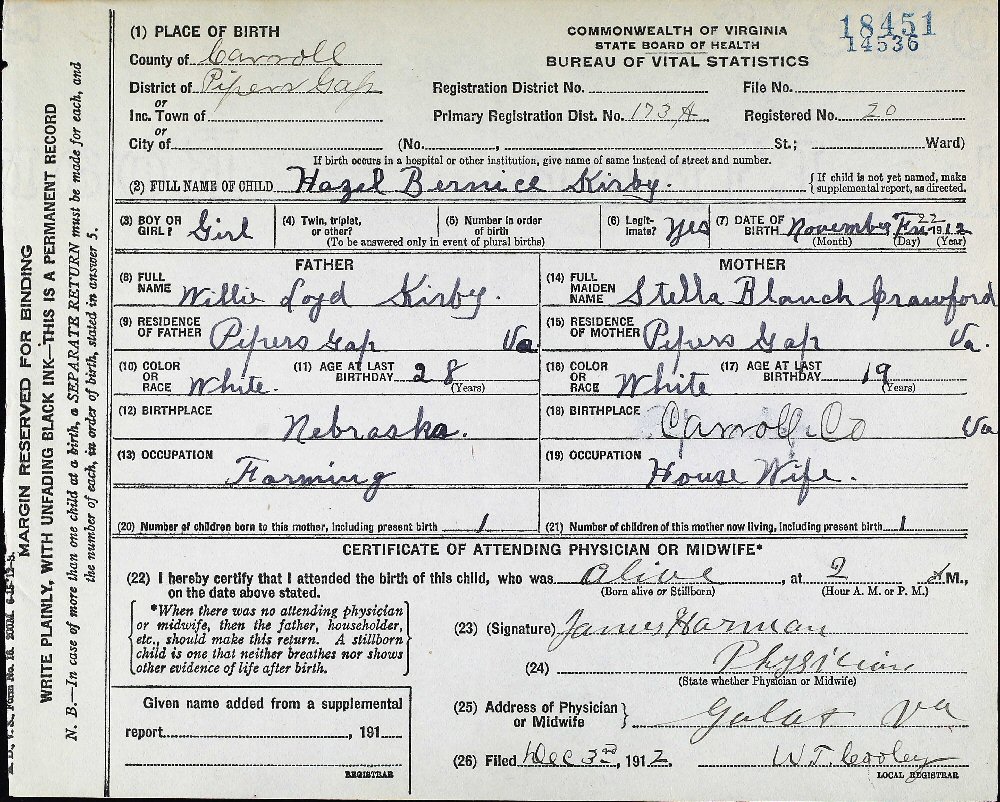 18451
14536
(1) PLACE OF BIRTH
COMMONWEALTH OF VIRGINIA
STATE BOARD OF HEALTH
BUREAU OF VITAL STATISTICS
County of Carroll
District of Pipers Gap
Registration District No. File No.
or
Inc. Town of
Primary Registration Dist. No. 173 A Registered No. 20
or
City of (No. , St.; Ward)
If birth occurs in a hospital or other institution, give name of same instead of street and number.
(2) FULL NAME OF CHILD Hazel Bernice Kirby. { If child is not yet named, make supplemental report, as directed.
(3) BOY OR GIRL? Girl (4) Twin, triplet, or other? (5) Number in order of birth (To be answered only in event of plural births) (6) Legitimate? Yes (7) DATE OF BIRTH November Fri 22 1912 (Month) (Day) (Year)
FATHER
(8) FULL NAME Willie Loyd Kirby.
(9) RESIDENCE OF FATHER Pipers Gap Va.
(10) COLOR OR RACE White. (11) AGE AT LAST BIRTHDAY 28 (Years)
(12) BIRTHPLACE Nebraska.
(13) OCCUPATION Farming
(20) Number of children born to this mother, including present birth 1
MOTHER
(14) FULL MAIDEN NAME Stella Blanch Crawford
(15) RESIDENCE OF MOTHER Pipers Gap Va.
(16) COLOR OR RACE White (17) AGE AT LAST BIRTHDAY 19 (Years)
(18) BIRTHPLACE Carroll Co Va
(19) OCCUPATION House Wife.
(21) Number of children of this mother now living, including present birth 1
CERTIFICATE OF ATTENDING PHYSICIAN OR MIDWIFE*
(22) I hereby certify that I attended the birth of this child, who was Alive , at 2 A M.,
on the date above stated. (Born alive or Stillborn) (Hour A. M. or P. M.)
*When there was no attending physician
or midwife, then the father, householder,
etc., should make this return. A stillborn
child is one that neither breathes nor shows
other evidence of life after birth.
(23) (Signature) James Harman
(24) Physician
(State whether Physician or Midwife)
Given name added from a supplemental
report , 191
REGISTRAR
(25) Address of Physician or Midwife } Galax Va
(26) Filed Dec 3rd, 1912. W. T. Cooley
LOCAL REGISTRAR
MARGIN RESERVED FOR BINDING
WRITE PLAINLY, WITH UNFADING BLACK INK—THIS IS A PERMANENT RECORD
N. B.—In case of more than one child at a birth, a SEPARATE RETURN must be made for each, and
the number of each, in order of birth, stated in answer 5.